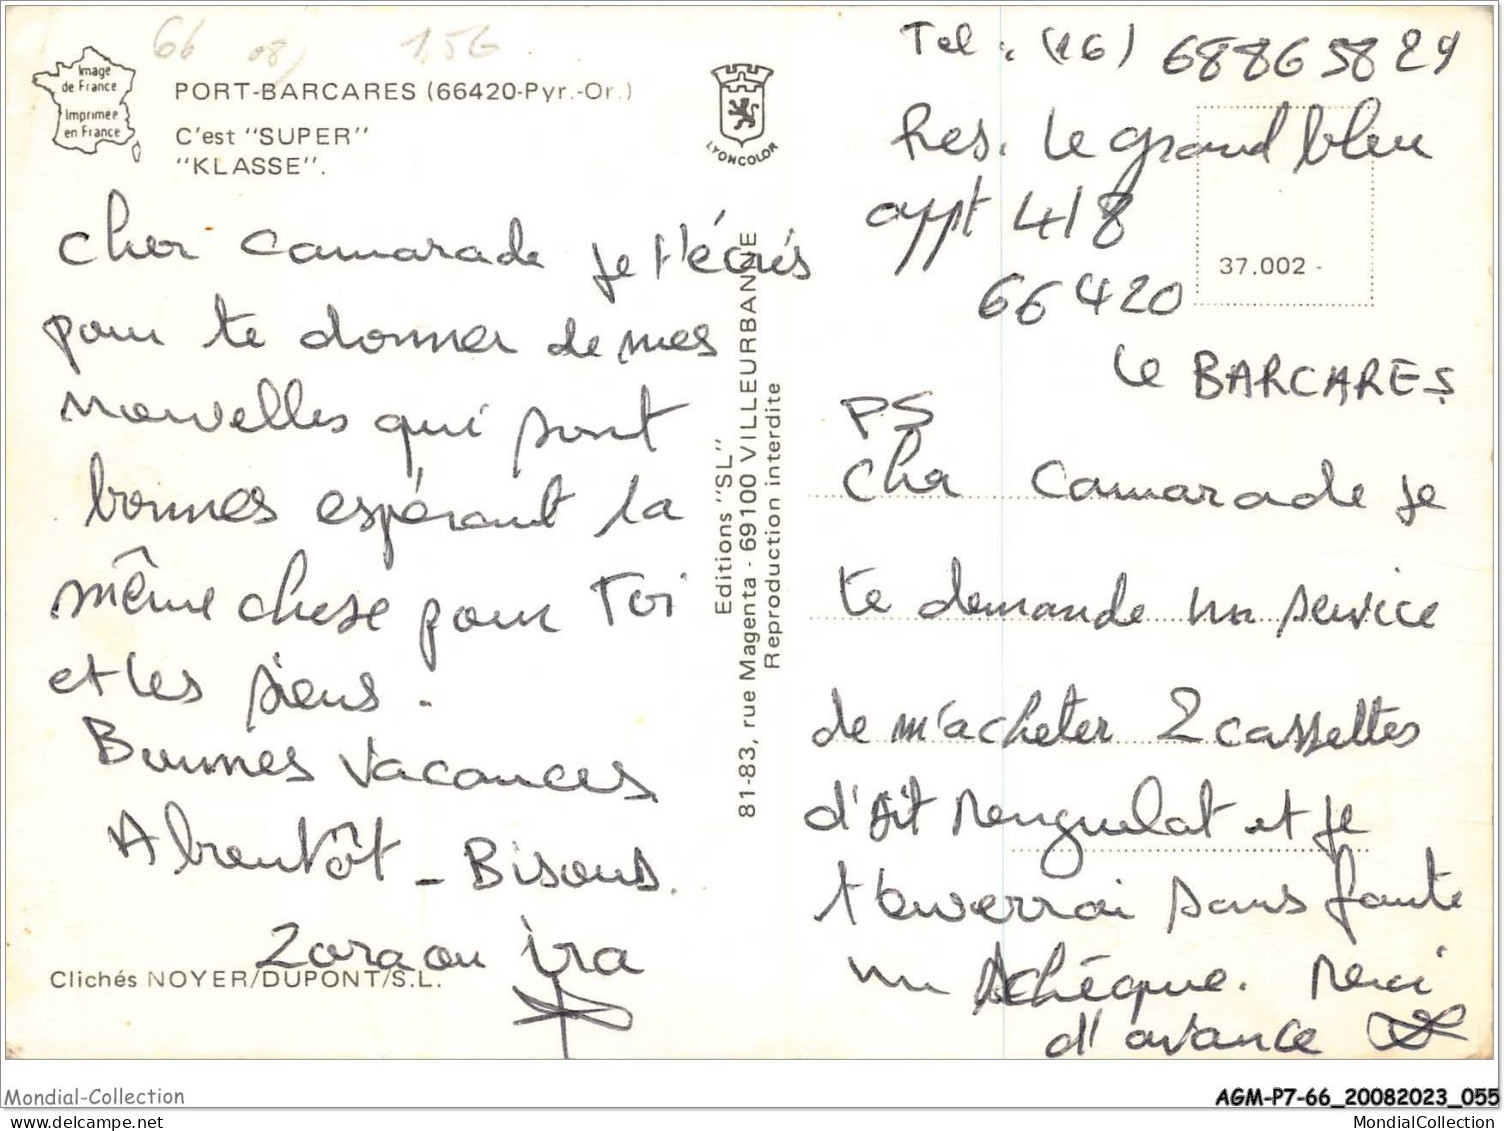 66 08) 1,56
Image
de France
Imprimée
en France
PORT-BARCARES (66420-Pyr.-Or.)
C'est "SUPER"
"KLASSE".
LYONCOLOR
cher camarade je t'écris
pour te donner de mes
nouvelles qui sont
bonnes espérant la
même chose pour Toi
et les siens.
Bonnes vacances
A bientôt - Bisous.
Clichés NOYER/DUPONT/S.L.
Editions "SL"
81-83, rue Magenta - 69100 VILLEURBANNE
Reproduction interdite
Tel : (16) 68865829
Res. Le grand bleu
appt 418
37.002 -
66420
Le BARCARES
PS
Cher camarade je
te demande un service
de m'acheter 2 cassettes
d'Ait Menguelat et je
t'enverrai sans faute
un chéque. Merci
d'avance
Mondial-Collection
AGM-P7-66_20082023_055
delcampe.net
MondialCollection